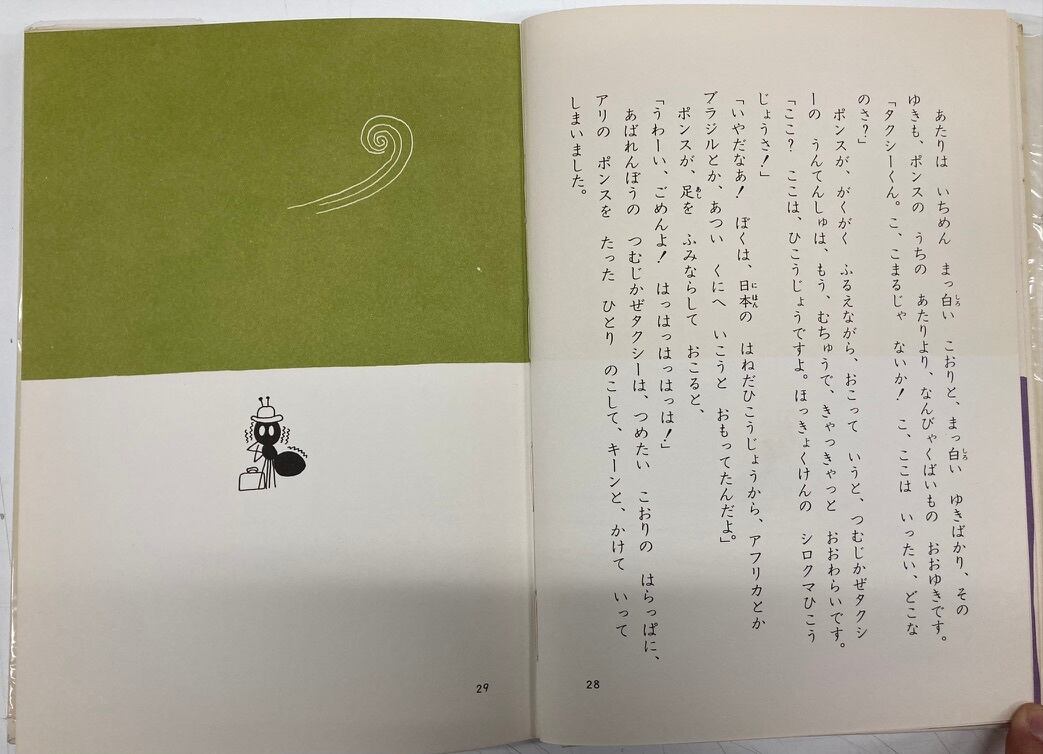 あたりは　いちめん　まっ白い　こおりと、まっ白い　ゆきばかり、その
ゆきも、ポンスの　うちの　あたりより、なんびゃくばいもの　おおゆきです。
「タクシーくん。こ、こまるじゃ　ないか！　こ、ここは　いったい、どこな
のさ？」
ポンスが、がくがく　ふるえながら、おこって　いうと、つむじかぜタクシ
ーの　うんてんしゅは、もう、むちゅうで、きゃっきゃっと　おおわらいです。
「ここ？　ここは、ひこうじょうですよ。ほっきょくけんの　シロクマひこう
じょうさ！」
「いやだなあ！　ぼくは、日本の　はねだひこうじょうから、アフリカとか
ブラジルとか、あつい　くにへ　いこうと　おもってたんだよ。」
ポンスが、足を　ふみならして　おこると、
「うわーい、ごめんよ！　はっはっはっはっは！」
あばれんぼうの　つむじかぜタクシーは、つめたい　こおりの　はらっぱに、
アリの　ポンスを　たった　ひとり　のこして、キーンと、かけて　いって
しまいました。
28
29